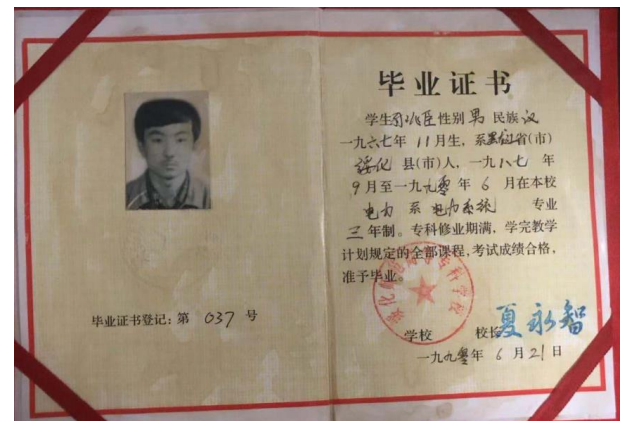 毕业证书
学生 性别男 民族汉
一九六七年11月生,系黑龙江省(市)
绥化县(市)人,一九八七年
9月至一九九零年6月在本校
电力系电力系统专业
三年制。专科修业期满,学完教学
计划规定的全部课程,考试成绩合格,
准予毕业。
学校 校长夏永智
一九九零年6月21日
毕业证书登记:第037号